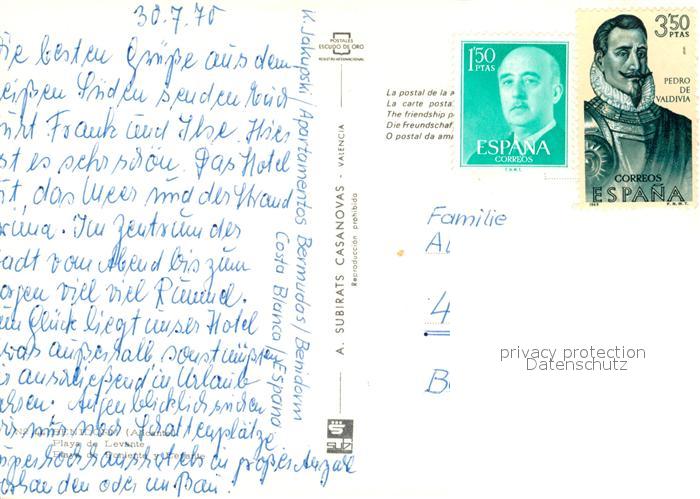 30.7.70
ie besten Grüße aus dem
eißen Süden senden Euch
urt Frank und Ilse. Hier
st es sehr schön. Das Hotel
ut, das Meer und der Strand
rima. Im Zentrum der
adt vom Abend bis zum
orgen viel viel Rummel.
um Glück liegt unser Hotel
was außerhalb sonst müßten
ir anschließend in Urlaub
Augenblicklich
wir nur noch Schattenplätze
in großer Anzahl
orhanden oder im Bau.
K. Jakupski / Apartamentos Bermudas / Benidorm
Costa Blanca / España
BENIDORM (Alicante)
Playa de Levante
Playa de Poniente y Levante
POSTALES
ESCUDO DE ORO
REGISTRO INTERNACIONAL
A. SUBIRATS CASANOVAS - VALENCIA
Reproducción prohibida
La postal de la a
La carte posta
The friendship p
Die Freundschaf
O postal da ami
1'50
PTAS
ESPAÑA
CORREOS
F.N.M.T.
3'50
PTAS
PEDRO
DE
VALDIVIA
CORREOS
ESPAÑA
F.N.M.T.
Familie
4
B
privacy protection
Datenschutz